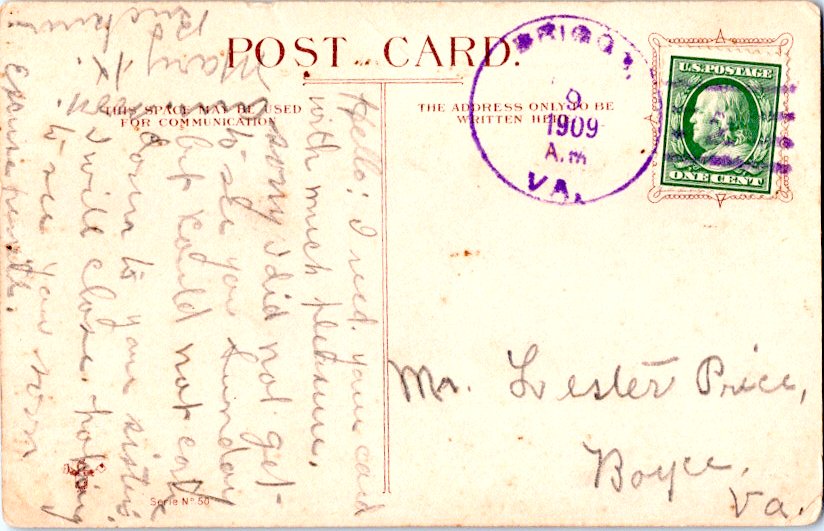 POST CARD.
THIS SPACE MAY BE USED
FOR COMMUNICATION
THE ADDRESS ONLY TO BE
WRITTEN HERE
BRIGGS
9
1909
A.M
VA.
U.S. POSTAGE
ONE CENT
Hello! I recd. your card
with much pleasure.
sorry I did not get
to see you Sunday
but could not
down to your sister's
I will close, hoping
to see you soon
Mary K.
Mr. Lester Price,
Boyce,
Va.
Serie No 50